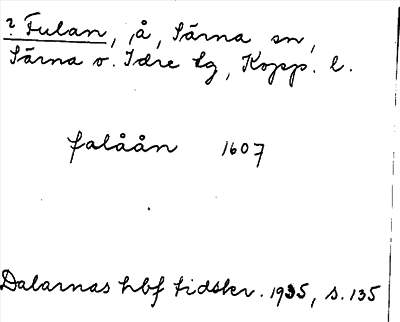 ? Fulan, å, Särna sn,
Särna o. Idre tg, Kopp. l.
falåån 1607
Dalarnas hbf tidskr. 1935, s. 135